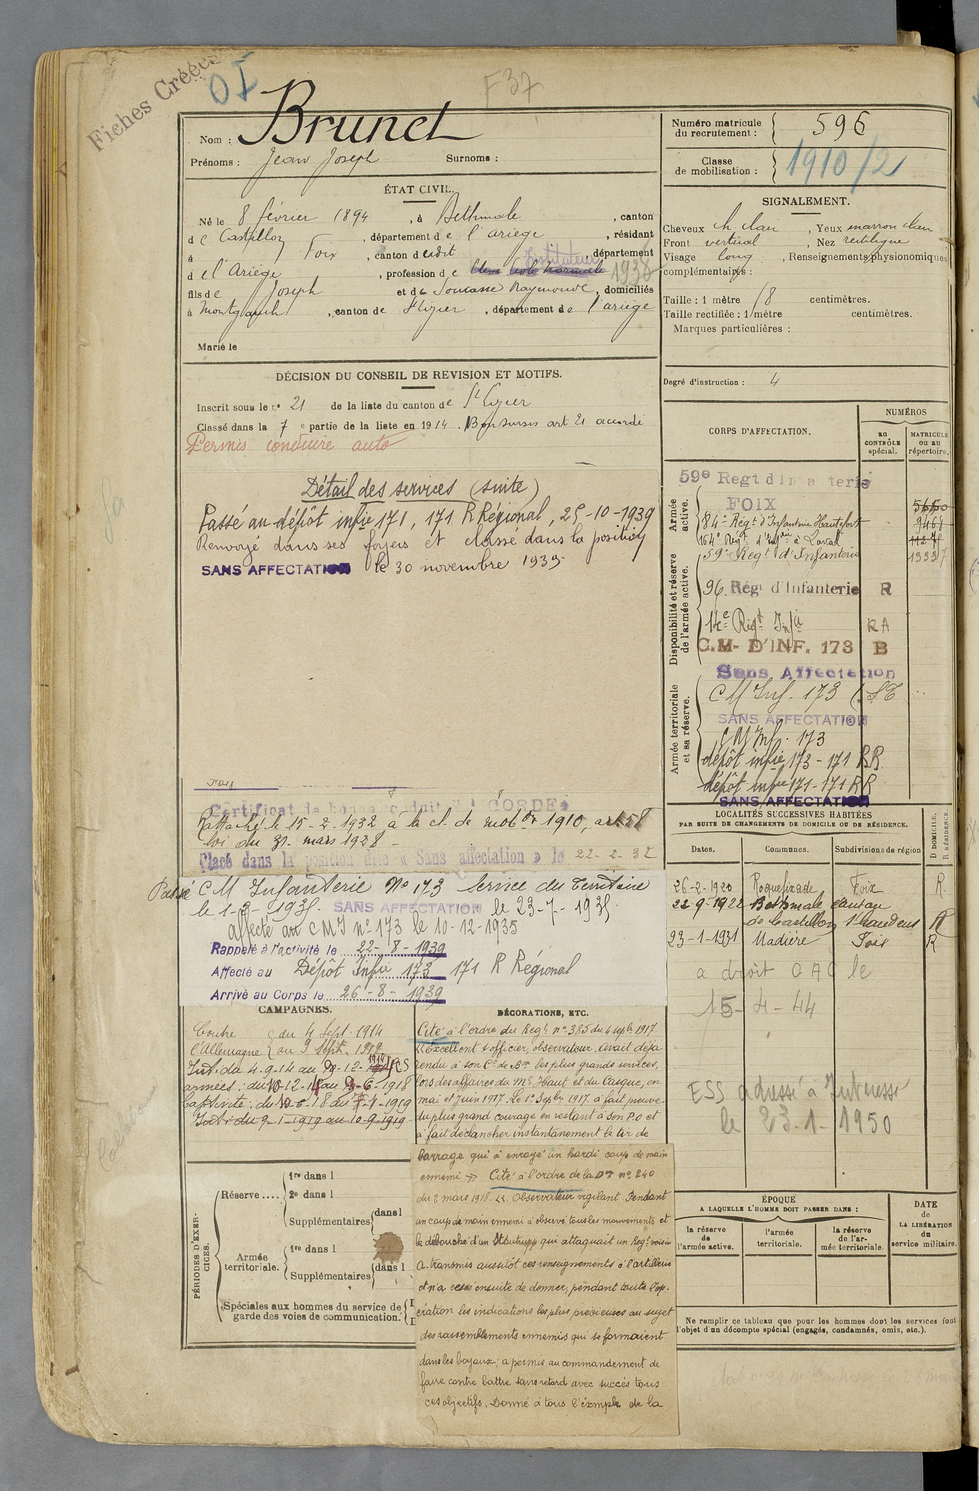 Fiches Créées
OI
F37
Nom : Brunet
Prénoms : Jean Joseph Surnoms :
Numéro matricule du recrutement : 596
Classe de mobilisation : 1910/2
ÉTAT CIVIL.
Né le 8 février 1894, à Bethmale, canton
de Castillon, département de l'ariège, résidant
à Foix, canton dudit, département
de l'Ariège, profession de Elève Ecole Normale Instituteur 1938
fils de Joseph et de Soucasse Raymonde, domiciliés
à Montgauch, canton de St Lizier, département de l'ariège
Marié le
SIGNALEMENT.
Cheveux ch clair, Yeux marron clair
Front vertical, Nez rectiligne
Visage long, Renseignements physionomiques
complémentaires :
Taille : 1 mètre 78 centimètres.
Taille rectifiée : 1 mètre centimètres.
Marques particulières :
Degré d'instruction : 4
DÉCISION DU CONSEIL DE REVISION ET MOTIFS.
Inscrit sous le n° 21 de la liste du canton de St Lizier
Classé dans la 7e partie de la liste en 1914. Bon sursis art 21 accordé
Permis conduire auto
Détail des services (suite)
Passé au dépôt infie 171, 171 R Régional, 25-10-1939
Renvoyé dans ses foyers et classé dans la position
SANS AFFECTATION le 30 novembre 1939
Certificat de bonne conduite ACCORDÉ
Rattaché le 15-2-1932 à la cl. de mobon 1910, art 58
loi du 31 mars 1928 -
Placé dans la position dite « Sans affectation » le 22-2-32
Passé CM Infanterie No 173 Service du Territoire
le 1-3-1935. SANS AFFECTATION le 23-7-1935.
affecté au CMI no 173 le 10-12-1935
Rappelé à l'activité le 22-8-1939
Affecté au Dépôt Infie 173 171 R Régional
Arrivé au Corps le 26-8-1939
CORPS D'AFFECTATION.
NUMÉROS
AU CONTRÔLE spécial.
MATRICULE OU AU répertoire.
Armée active.
59e Regt d'Infanterie
FOIX
84e Régt d'Infanterie Hautefort 9461
164e Regt d'Infrie à Laval
59e Regt d'Infanterie
Disponibilité et réserve de l'armée active.
96 Régt d'Infanterie R
14e Régt Infie RA
C.M- D'INF. 173 B
Sans Affectation
Armée territoriale et sa réserve.
CM Inf. 173 (ST
SANS AFFECTATION
CM Inf. 173
dépôt infie 173 - 171 RR.
dépôt infie 171 - 171 RR
SANS AFFECTATION
LOCALITÉS SUCCESSIVES HABITÉES
PAR SUITE DE CHANGEMENTS DE DOMICILE OU DE RÉSIDENCE.
Dates. Communes. Subdivisions de région D DOMICILE, R RÉSIDENCE.
26-2-1920 Roquefixade Foix R.
22-9-1922 Bethmale canton
de Castillon St Gaudens R
23-1-1931 Madière Foix R
a droit OAC le
15-4-44
ESS adressé à Intéressé
le 23-1-1950
CAMPAGNES.
Contre l'Allemagne du 4 Sept. 1914
au 9 Sept. 1919
Int. du 4-9-14 au 9-12-1914
armées : du 10-12-14 au 9-6-1918
Captivité : du 10-6-18 au 8-1-1919
Intr du 9-1-1919 au 10-9-1919
DÉCORATIONS, ETC.
Cité à l'ordre du Regt no 385 du 4 septbre 1917
« Excellent s/officier, observateur. Avait déjà
rendu à son Ct de Bon les plus grands services,
lors des affaires du Mt Haut et du Casque, en
mai et juin 1917. Le 1er Sepbre 1917 a fait preuve
du plus grand courage en restant à son P.O et
a fait déclancher instantanément le tir de
barrage qui a enrayé un hardi coup de main
ennemi » Cité à l'ordre de la DI no 240
du 2 mars 1918. « Observateur vigilant. Pendant
un coup de main ennemi a observé tous les mouvements et
le débouché d'un Stosstrupp qui attaquait un Regt voisin
A transmis aussitôt ces renseignements à l'artillerie
et n'a cessé ensuite de donner, pendant toute l'op-
ération les indications les plus précieuses au sujet
des rassemblements ennemis qui se formaient
dans les boyaux ; a permis au commandement de
faire contre battre sans retard avec succès tous
ces objectifs. Donné à tous l'exemple de la
PÉRIODES D'EXERCICES.
Réserve.... 1re dans l
2e dans l
Supplémentaires dans l
Armée territoriale. 1re dans l
Supplémentaires dans l
Spéciales aux hommes du service de garde des voies de communication.
ÉPOQUE
A LAQUELLE L'HOMME DOIT PASSER DANS :
la réserve de l'armée active.
l'armée territoriale.
la réserve de l'armée territoriale.
DATE de LA LIBÉRATION du service militaire.
Ne remplir ce tableau que pour les hommes dont les services font
l'objet d'un décompte spécial (engagés, condamnés, omis, etc.).